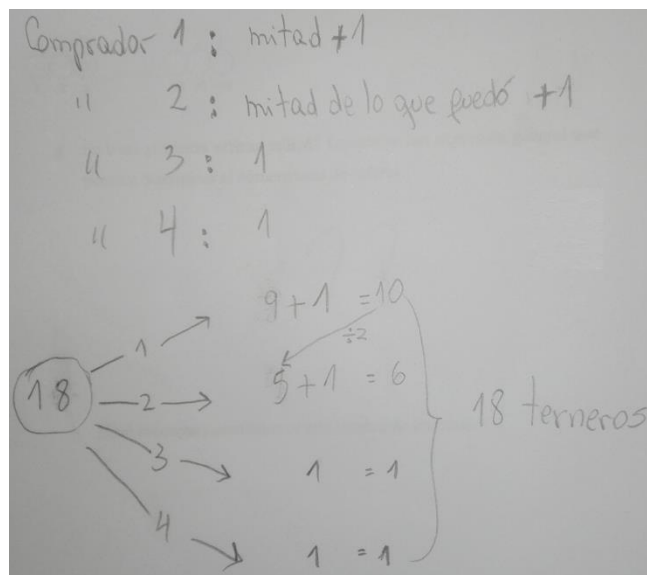 Comprador 1 : mitad +1
" 2 : mitad de lo que quedó +1
" 3 : 1
" 4 : 1
9+1 =10
÷2
5+1 = 6
18
1
2
3
4
1 =1
1 =1
18 terneros